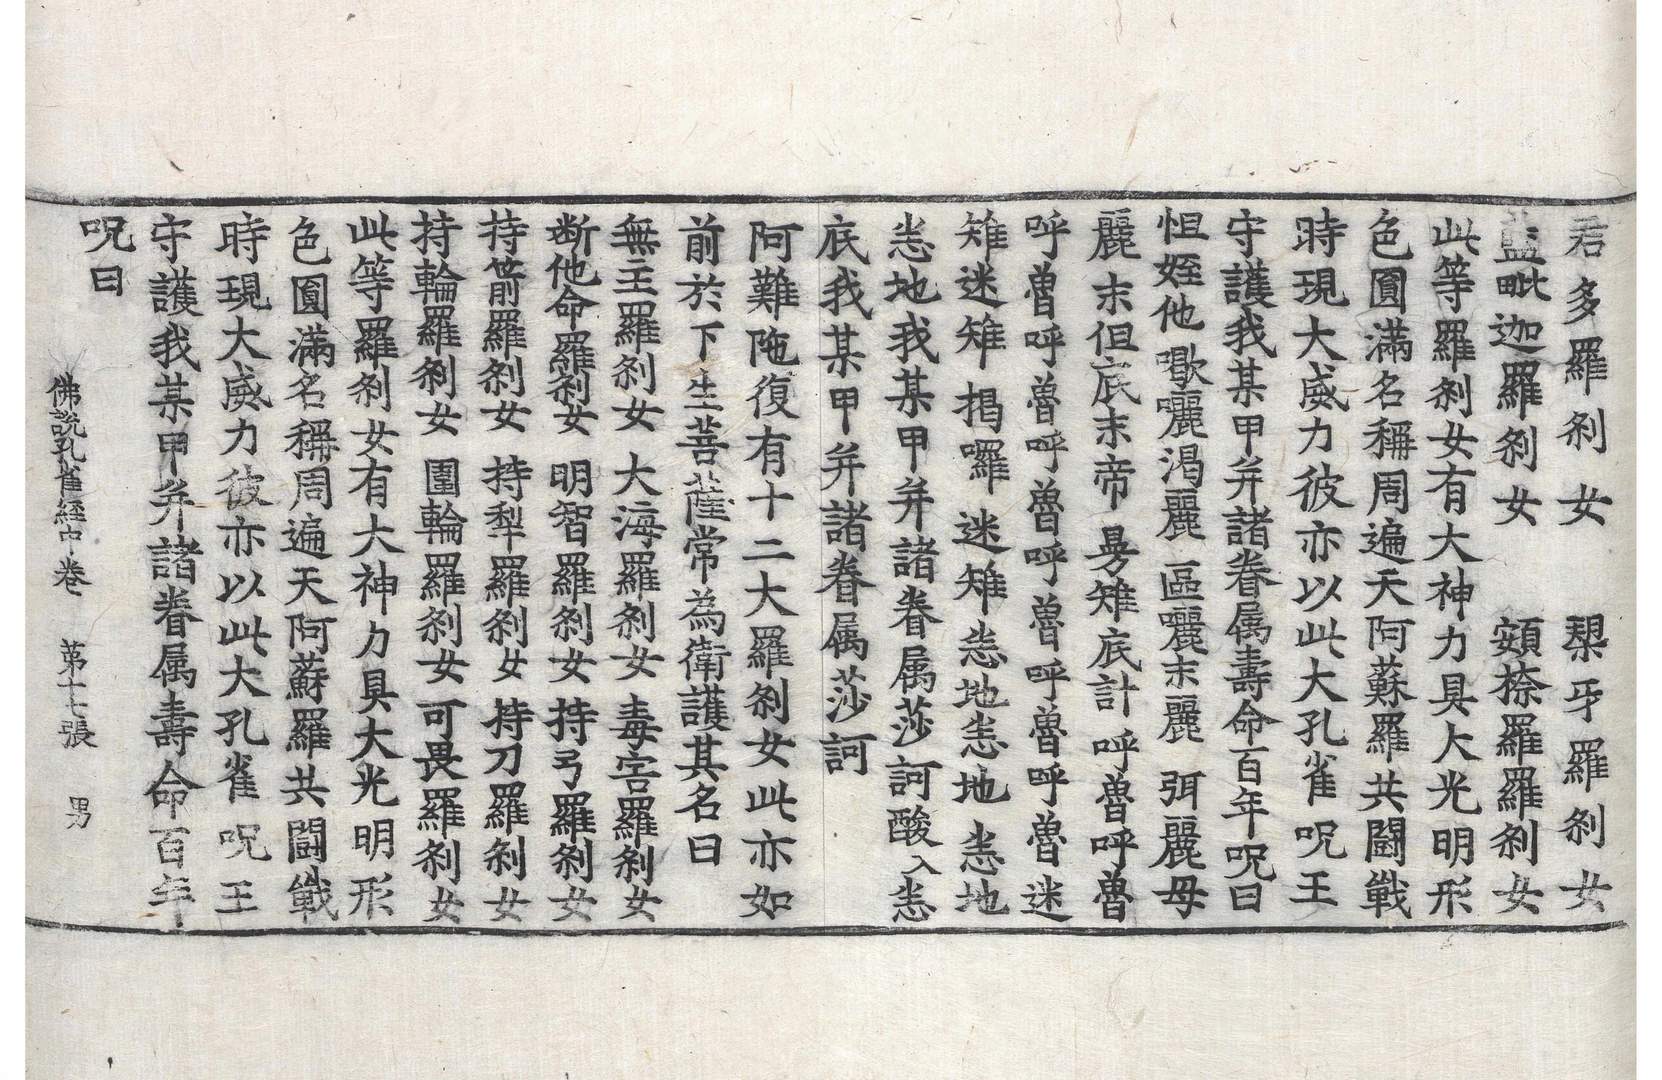 君多羅剎女 槼牙羅剎女
藍毗迦羅剎女 頞捺羅羅剎女
此等羅剎女有大神力具大光明形
色圓滿名稱周遍天阿蘇羅共鬪戰
時現大威力彼亦以此大孔雀呪王
守護我某甲并諸眷属壽命百年呪曰
怛姪他 歌囇渴麗 區囇末麗 弭麗母
麗 末但底末帝 曼雉底計 呼魯呼魯
呼魯呼魯呼魯呼魯呼魯呼魯迷
雉迷雉 揭囉 迷雉恙地恙地 恙地
恙地我某甲并諸眷属莎訶醙入恙
底我某甲并諸眷属莎訶
阿難陁復有十二大羅剎女此亦如
前於下生菩薩常為衛護其名曰
無主羅剎女 大海羅剎女 毒害羅剎女
断他命羅剎女 明智羅剎女 持弓羅剎女
持箭羅剎女 持犁羅剎女 持刀羅剎女
持輪羅剎女 圍輪羅剎女 可畏羅剎女
此等羅剎女有大神力具大光明形
色圓滿名稱周遍天阿蘇羅共鬪戰
時現大威力彼亦以此大孔雀呪王
守護我某甲并諸眷属壽命百年
呪曰
佛說孔雀経中卷 第十七張 男